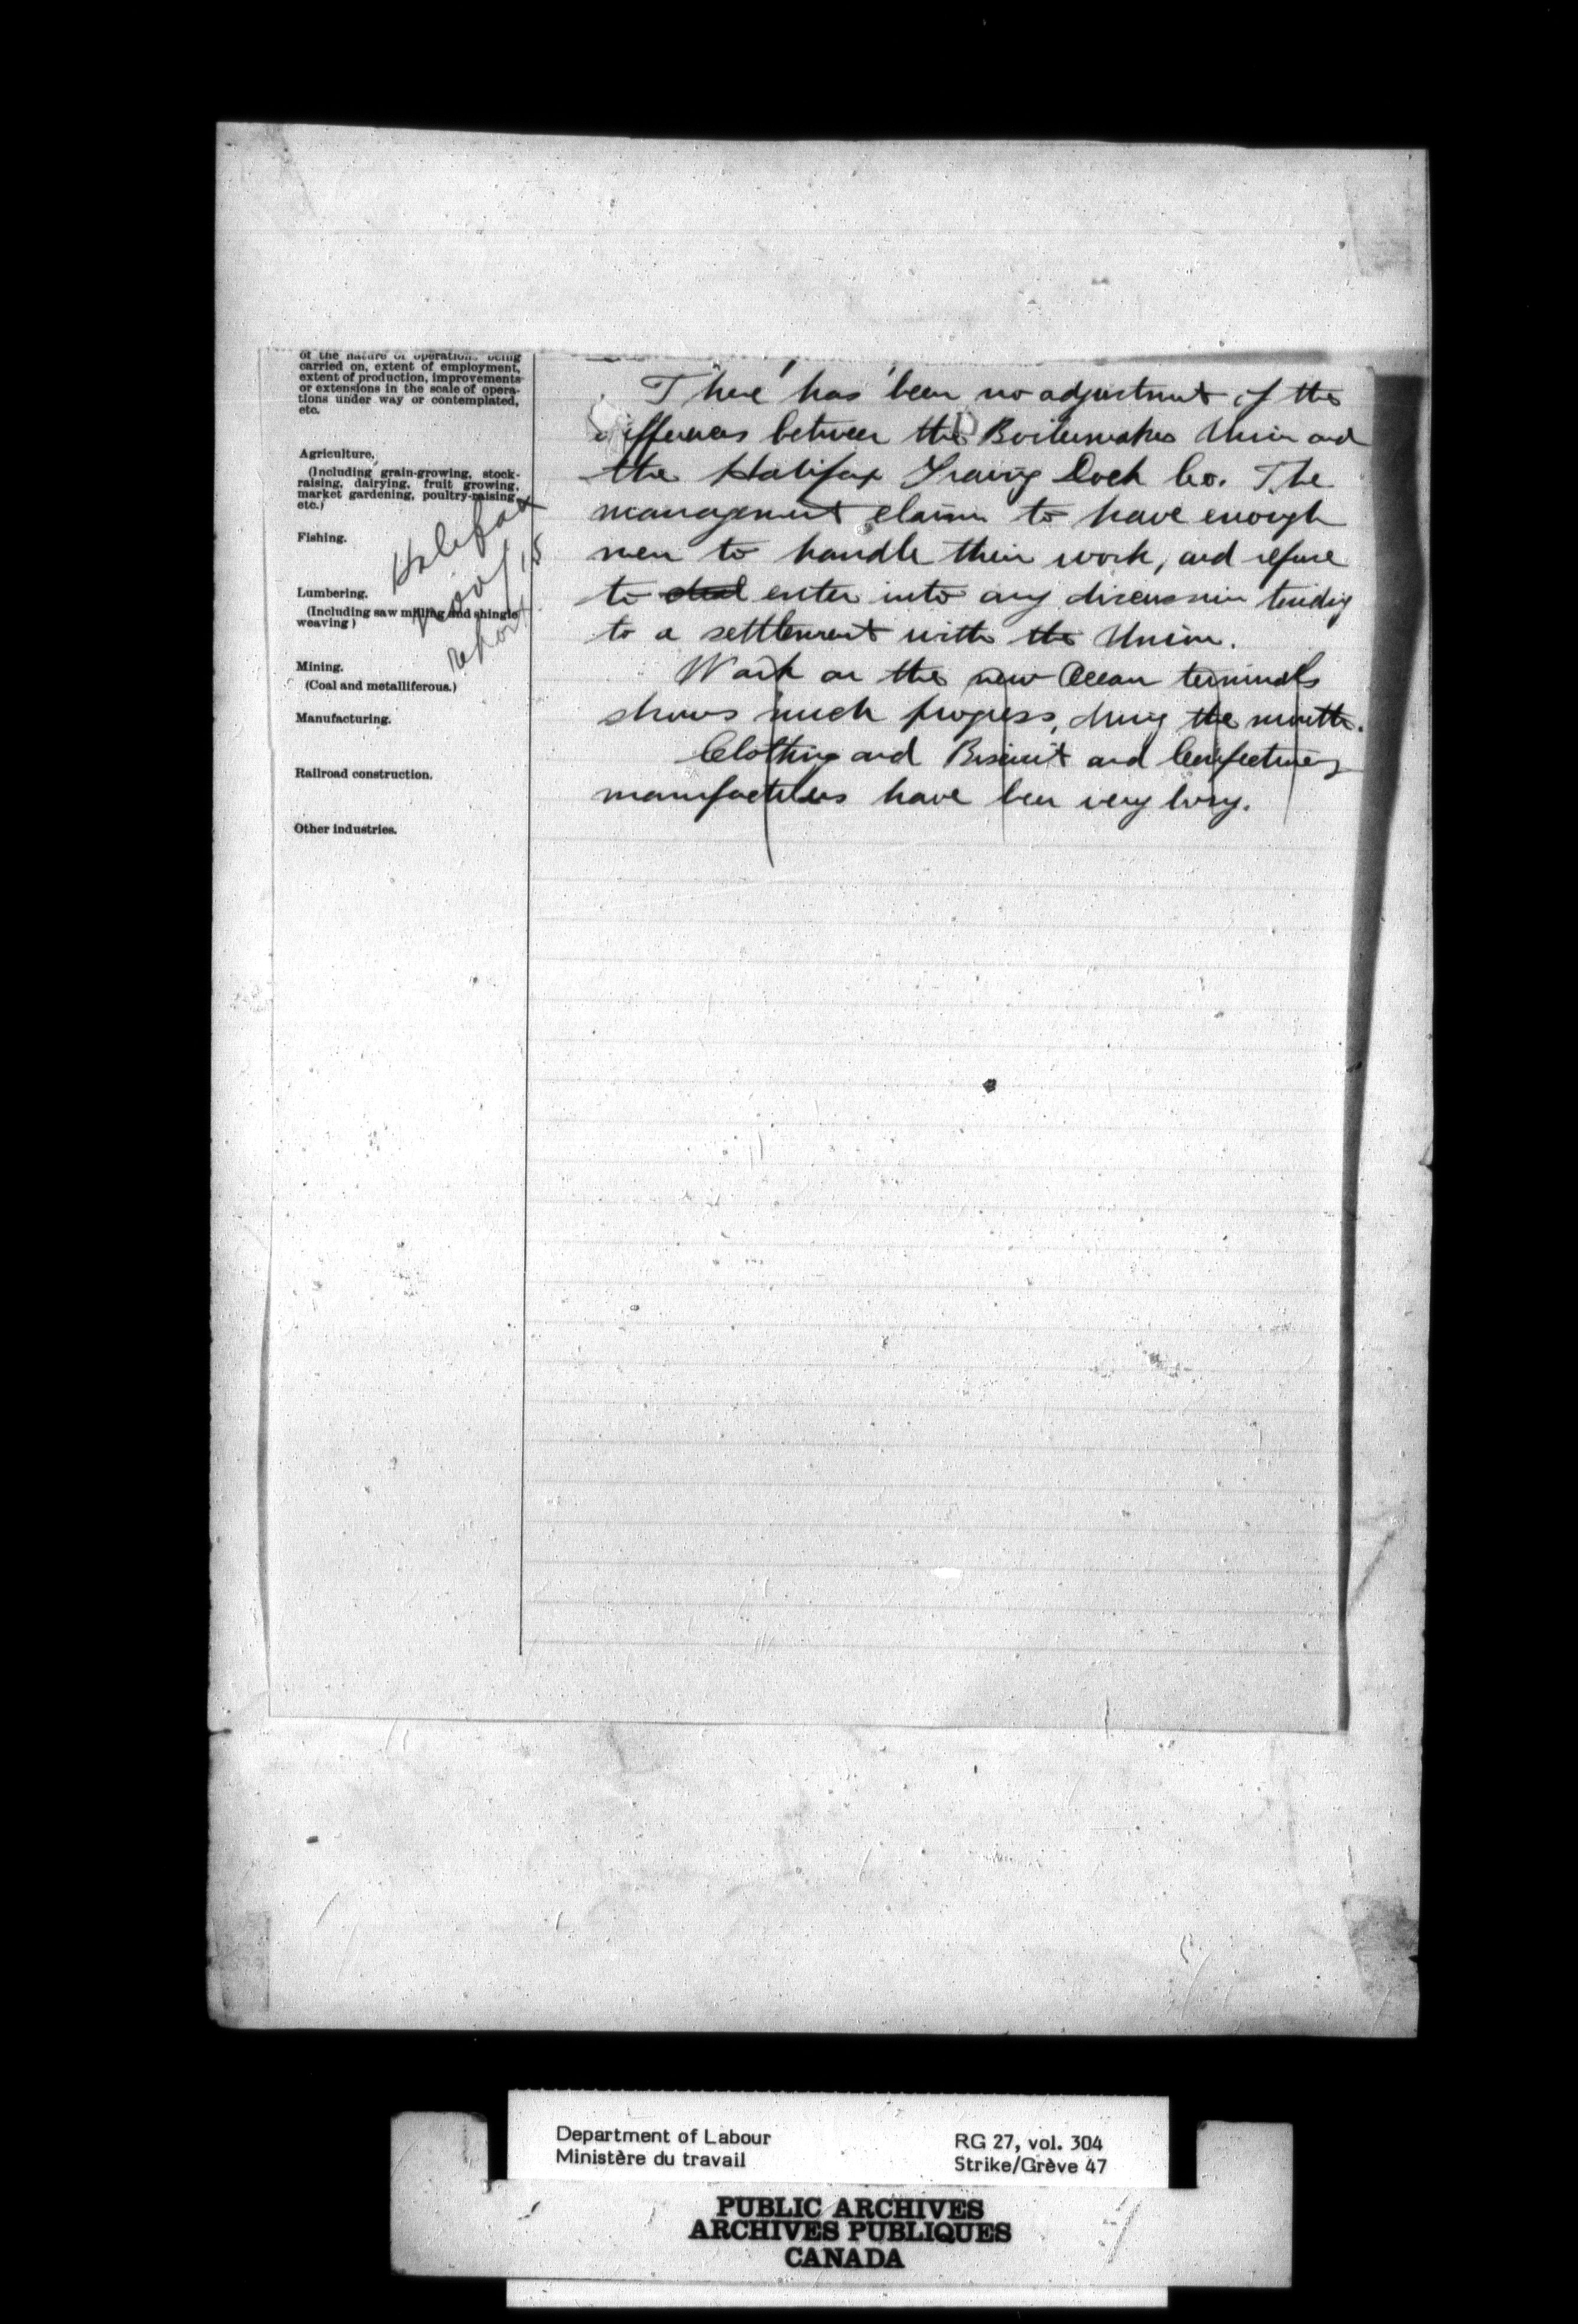 of the nature of operations being
carried on, extent of employment,
extent of production, improvements
or extensions in the scale of opera-
tions under way or contemplated,
etc.
Agriculture.
(Including grain-growing, stock-
raising, dairying, fruit growing,
market gardening, poultry-raising,
etc.)
Fishing.
Lumbering.
(Including saw milling and shingle
weaving)
Mining.
(Coal and metalliferous.)
Manufacturing.
Railroad construction.
Other industries.
Halifax
Nov/15
report
There has been no adjustment of the
differences between the Boilermakers Union and
the Halifax Graving Dock Co. The
management claim to have enough
men to handle their work, and refuse
to enter into any discussion tending
to a settlement with the Union.
Work on the new Ocean terminals
shows much progress, during the month.
Clothing and Biscuit and Confectionery
manufacturers have been very busy.
Department of Labour
Ministère du travail
RG 27, vol. 304
Strike/Grève 47
PUBLIC ARCHIVES
ARCHIVES PUBLIQUES
CANADA